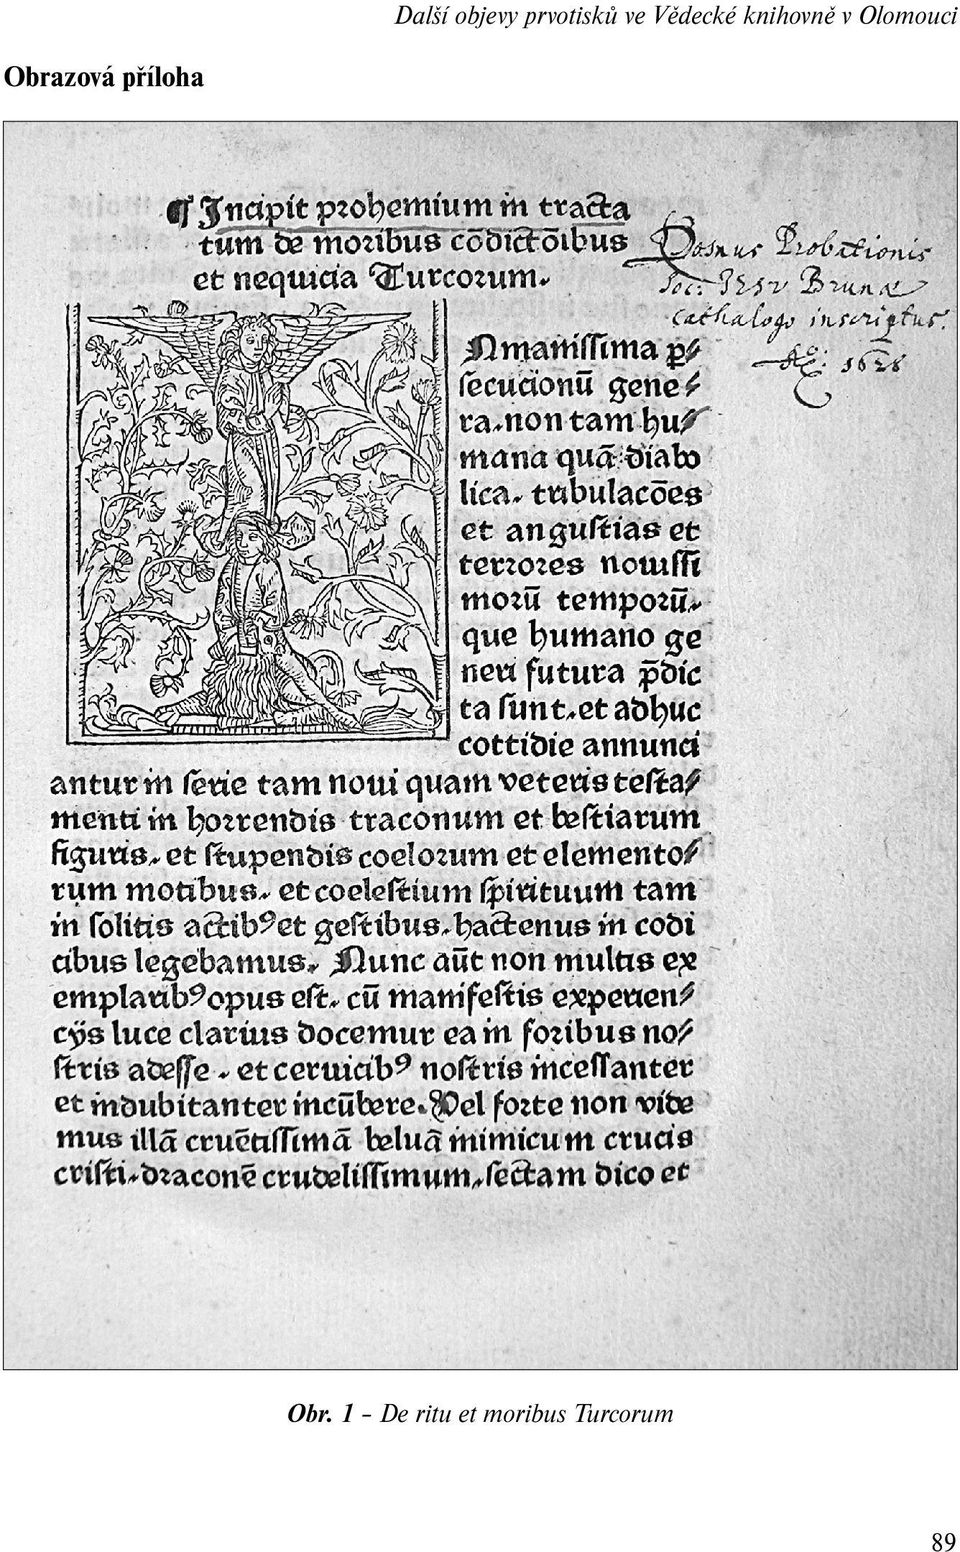 Další objevy prvotisků ve Vědecké knihovně v Olomouci
Obrazová příloha
¶ Incipit prohemium in tracta
tum de moribus cōdictōibus
et nequicia Turcorum.
Domus Probationis
Soc: Jesu Brunæ
cathalogo inscriptus.
Aº: 1628
Nmanissima ꝑ⸗
secucionū gene⸗
ra. non tam hu⸗
mana quā diabo
lica. tribulacōes
et angustias et
terrores nouissi
morū temporū.
que humano ge
neri futura p̄dic
ta sunt. et adhuc
cottidie annunci
antur in serie tam noui quam veteris testa⸗
menti in horrendis traconum et bestiarum
figuris. et stupendis coelorum et elemento⸗
rum motibus. et coelestium spirituum tam
in solitis actibꝰ et gestibus. hactenus in codi
cibus legebamus. Nunc aūt non multis ex
emplaribꝰ opus est. cū manifestis experien⸗
cijs luce clarius docemur ea in foribus no⸗
stris adesse. et ceruicibꝰ nostris incessanter
et indubitanter incūbere. Vel forte non vide
mus illā cruētissimā beluā inimicum crucis
cristi. draconē crudelissimum. sectam dico et
Obr. 1 – De ritu et moribus Turcorum
89